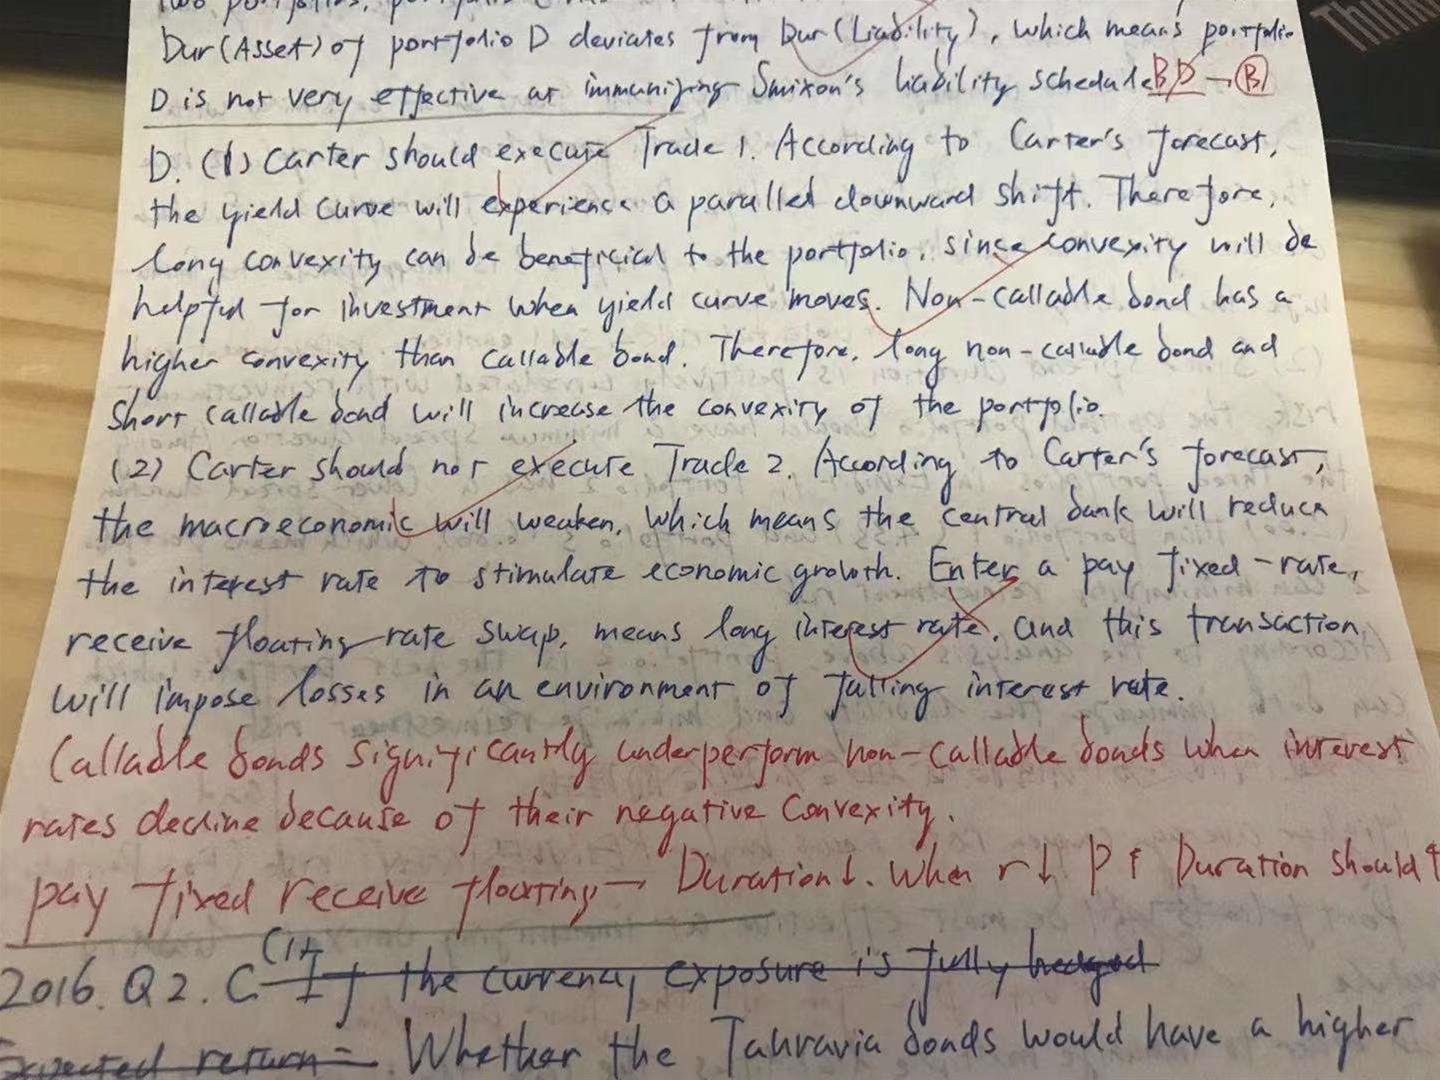 Dur(Asset) of portfolio D deviates from Dur(Liability), which means portfolio
D is not very effective at immunizing Smixon's liability schedule BD → B
D. (1) Carter should execute Trade 1. According to Carter's forecast,
the yield curve will experience a parallel downward shift. Therefore,
long convexity can be beneficial to the portfolio, since convexity will be
helpful for investment when yield curve moves. Non-callable bond has a
higher convexity than callable bond. Therefore, long non-callable bond and
short callable bond will increase the convexity of the portfolio.
(2) Carter should not execute Trade 2. According to Carter's forecast,
the macroeconomic will weaken, which means the central bank will reduce
the interest rate to stimulate economic growth. Enter a pay fixed-rate,
receive floating-rate swap, means long interest rate, and this transaction
will impose losses in an environment of falling interest rate.
Callable bonds significantly underperform non-callable bonds when interest
rates decline because of their negative convexity.
pay fixed receive floating → Duration↓. When r↓ P↑ Duration should↑
2016. Q2. C If the currency exposure is fully hedged
Expected return = Whether the Tahravia bonds would have a higher